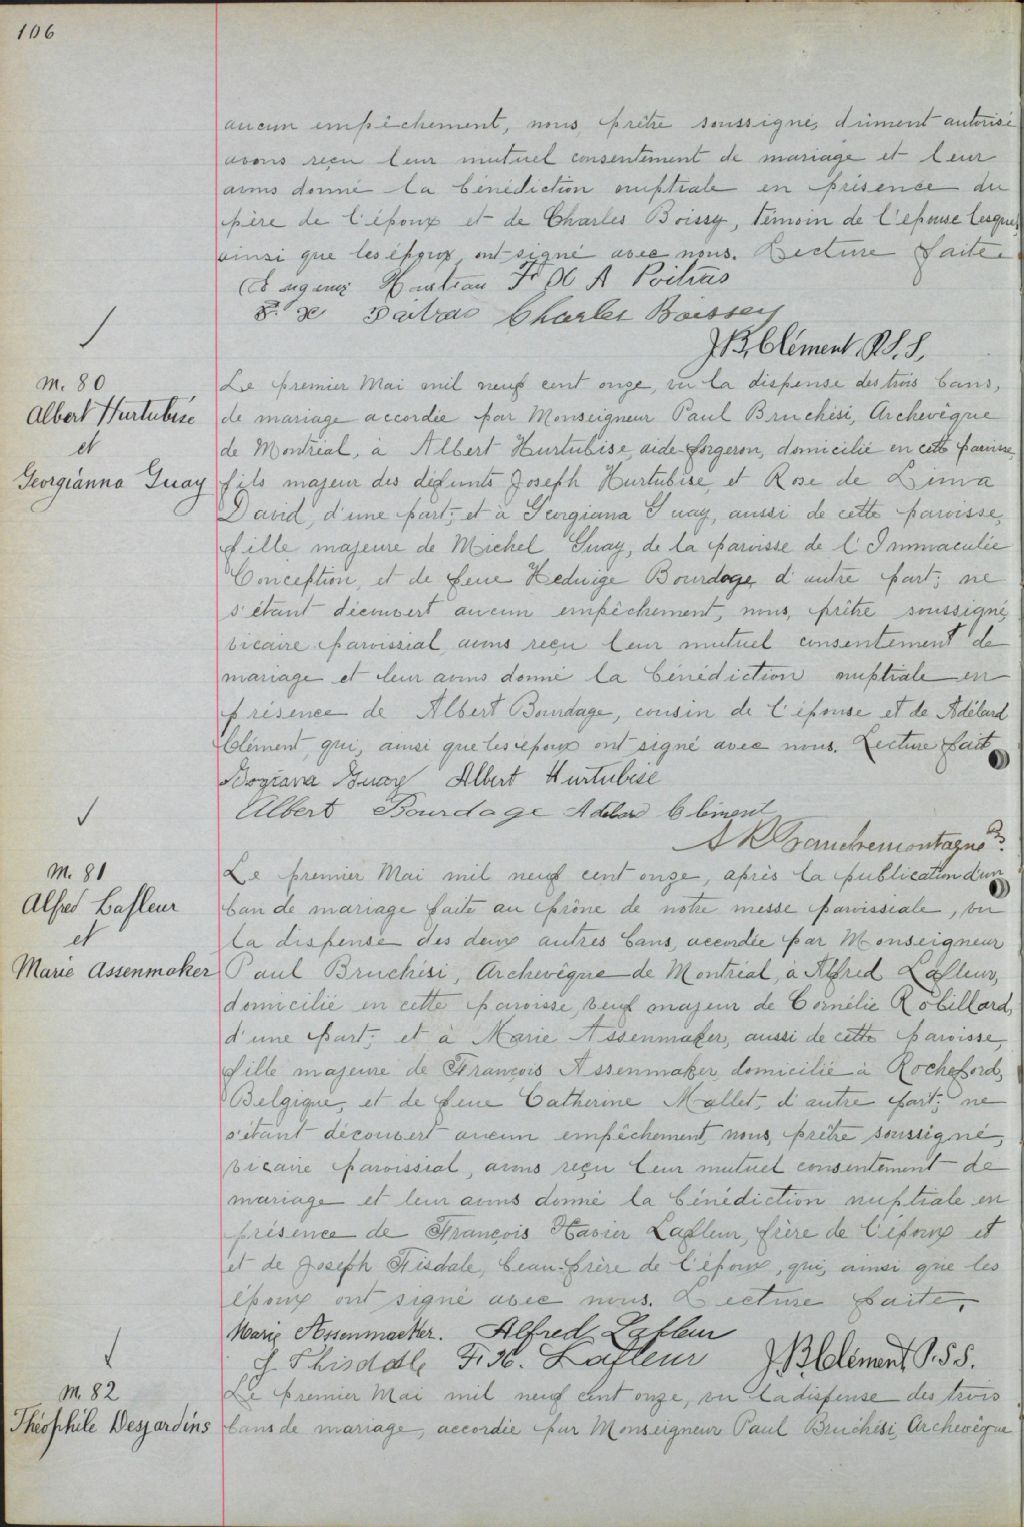 106
aucun empêchement, nous, prêtre soussigné, dûment autorisé
avons reçu leur mutuel consentement de mariage et leur
avons donné la bénédiction nuptiale en présence du
père de l'époux et de Charles Boissy, témoin de l'épouse lesquels
ainsi que les époux, ont signé avec nous. Lecture faite.
F X A Poitras
F. X Poitras Charles Boissey
J.B. Clément P.S.S.
M. 80
Albert Hurtubise
et
Georgianna Guay
Le premier Mai mil neuf cent onze, vu la dispense des trois bans,
de mariage accordée par Monseigneur Paul Bruchési, Archevêque
de Montréal, à Albert Hurtubise, aide-forgeron, domicilié en cette paroisse,
fils majeur des défunts Joseph Hurtubise, et Rose de Lima
David, d'une part; et à Georgiana Guay, aussi de cette paroisse,
fille majeure de Michel Guay, de la paroisse de l'Immaculée
Conception, et de feue Hedwige Bourdage, d'autre part; ne
s'étant découvert aucun empêchement, nous, prêtre soussigné,
vicaire paroissial, avons reçu leur mutuel consentement de
mariage et leur avons donné la bénédiction nuptiale en
présence de Albert Bourdage, cousin de l'épouse et de Adélard
Clément, qui, ainsi que les époux ont signé avec nous. Lecture fait
Gogiana Guay Albert Hurtubise
Albert Bourdage Adelard Clément
A R Franchemontagne Ptr.
M. 81
Alfred Lafleur
et
Marie Assenmaker
Le premier Mai mil neuf cent onze, après la publication d'un
ban de mariage faite au prône de notre messe paroissiale, vu
la dispense des deux autres bans, accordée par Monseigneur
Paul Bruchési, Archevêque de Montréal, à Alfred Lafleur,
domicilié en cette paroisse, veuf majeur de Cornélie Robillard,
d'une part; et à Marie Assenmaker, aussi de cette paroisse,
fille majeure de François Assenmaker, domicilié à Rocheford,
Belgique, et de feue Catherine Mallet, d'autre part; ne
s'étant découvert aucun empêchement, nous, prêtre soussigné,
vicaire paroissial, avons reçu leur mutuel consentement de
mariage et leur avons donné la bénédiction nuptiale en
présence de François Xavier Lafleur, frère de l'époux et
et de Joseph Tisdale, beau-frère de l'époux, qui, ainsi que les
époux ont signé avec nous. Lecture faite.
Marie Assenmacker. Alfred Lafleur
J Thisdale F. X. Lafleur J.B. Clément P.S.S.
M. 82
Théophile Desjardins
Le premier Mai mil neuf cent onze, vu la dispense des trois
bans de mariage, accordée par Monseigneur Paul Bruchési, Archevêque